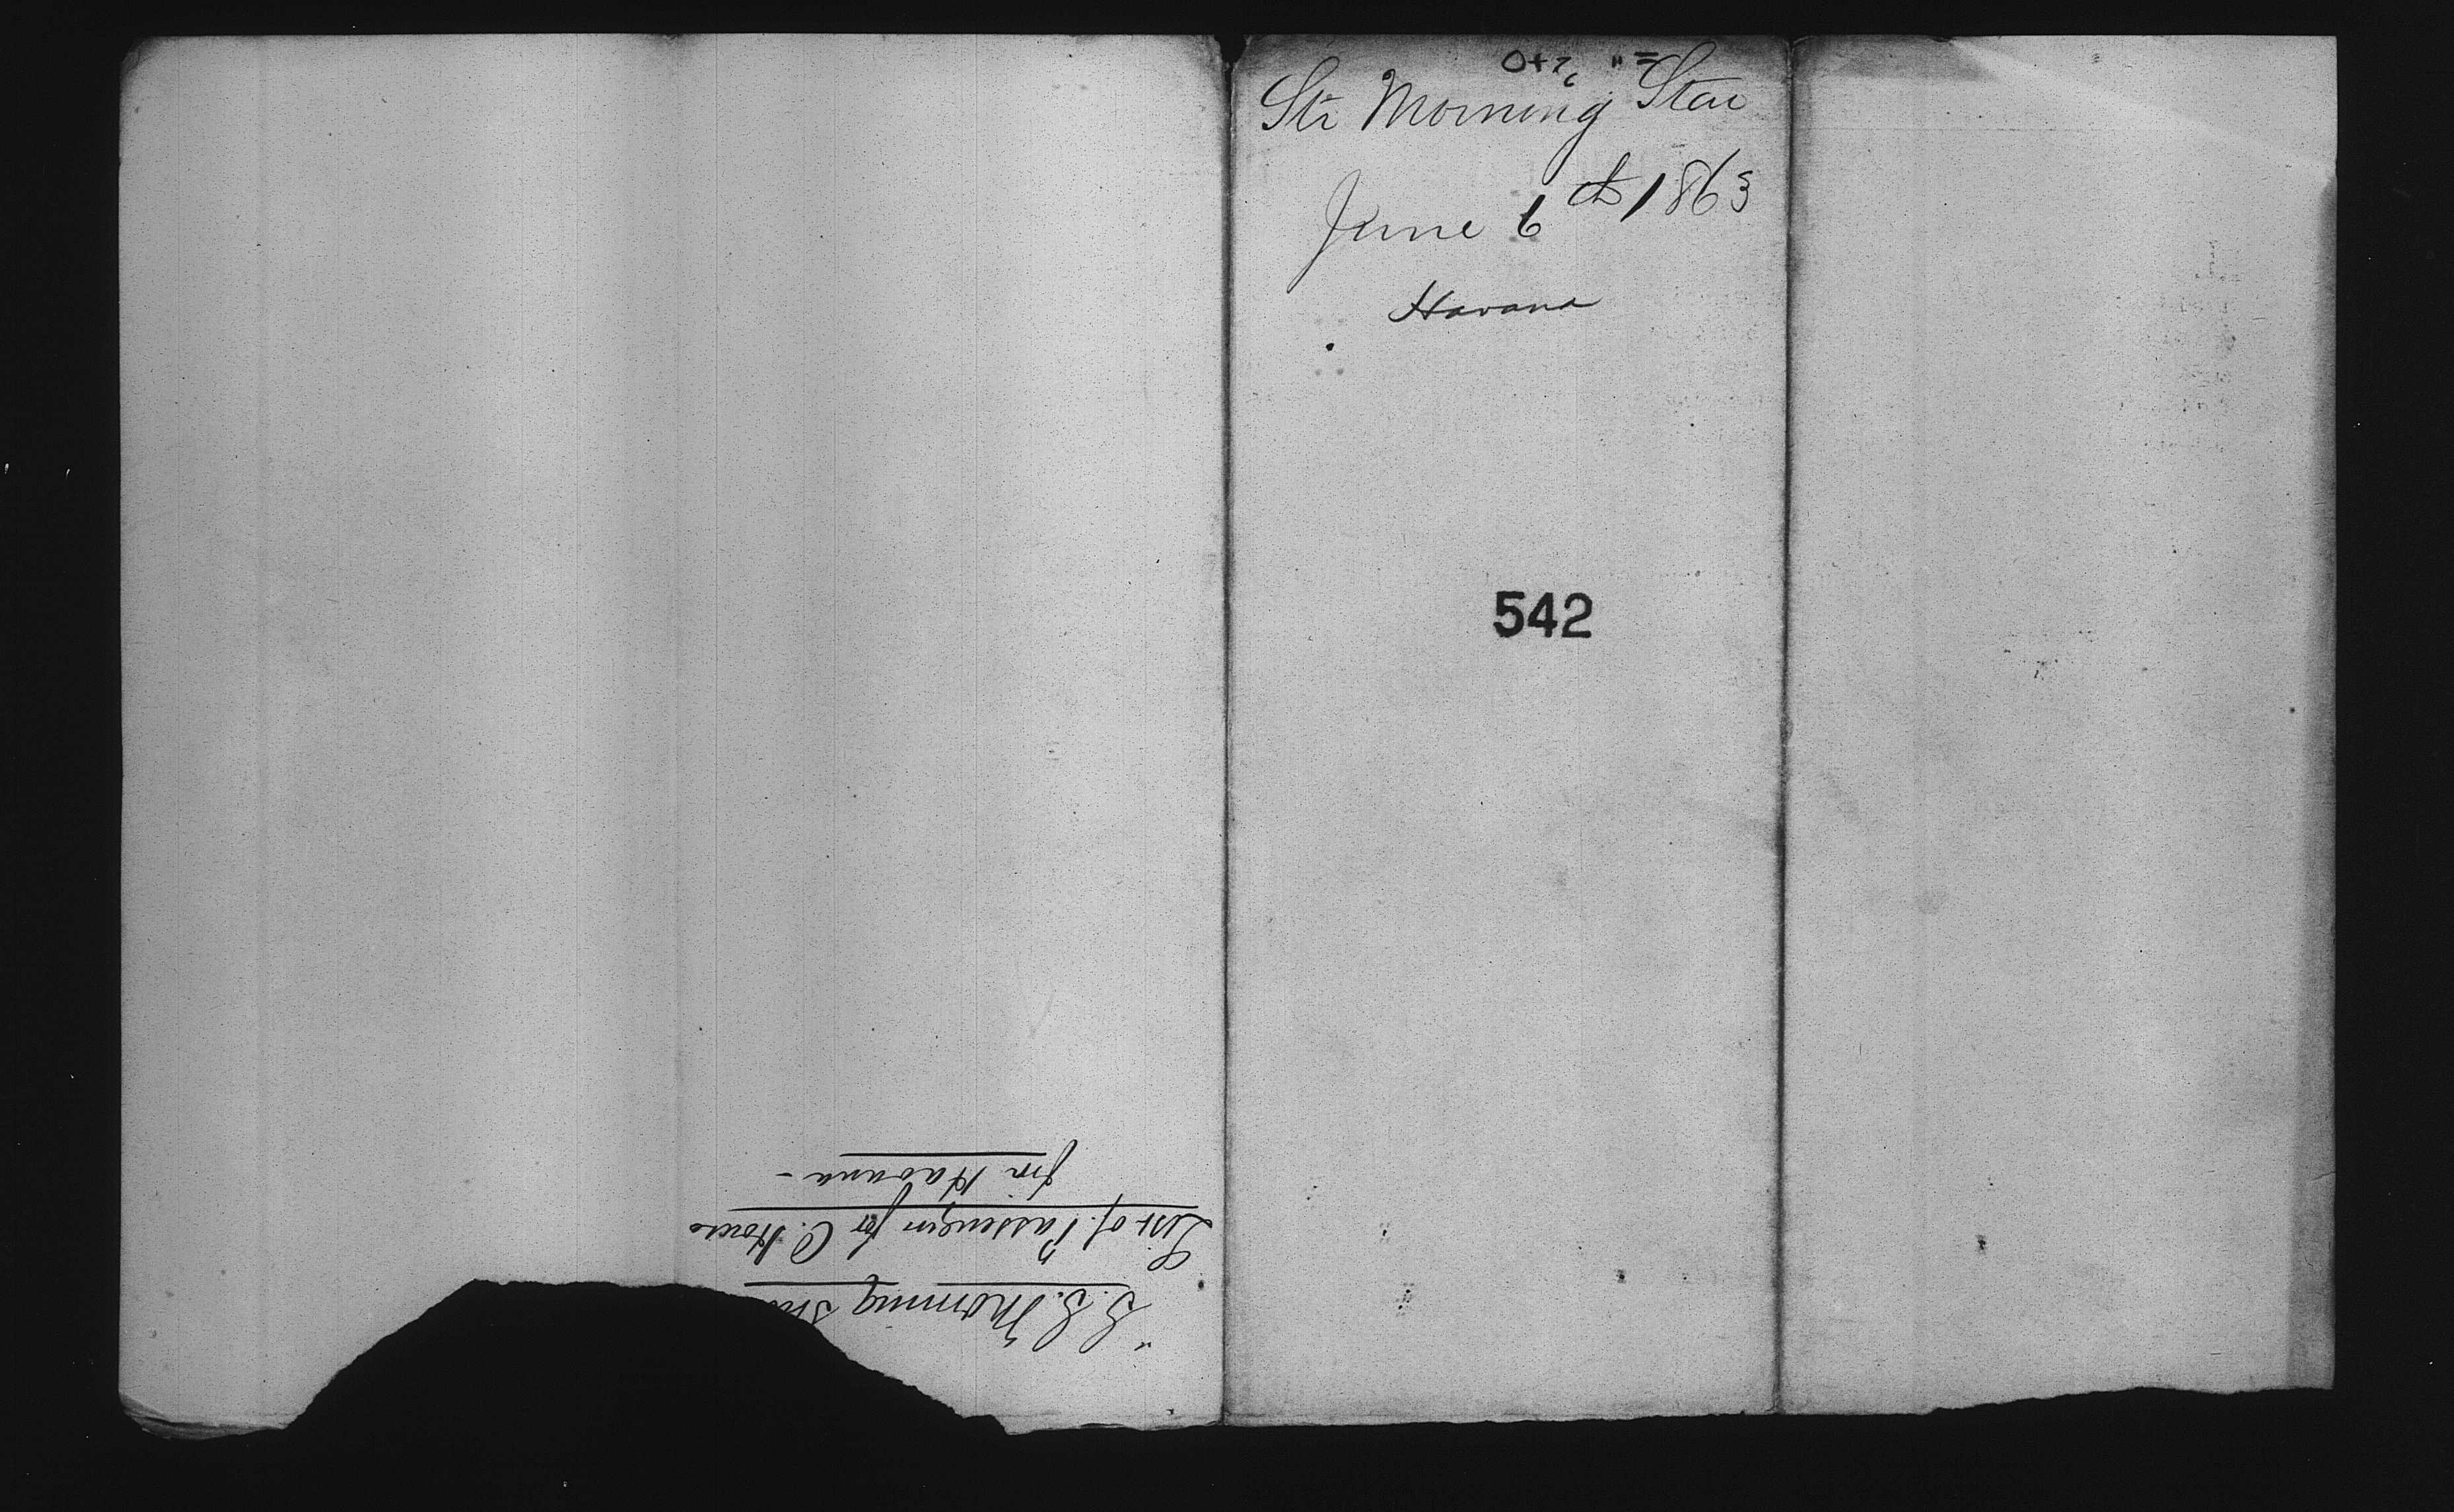 Str Morning Star
June 6th 1863
Havana
542
"S.S. Morning Sta
List of Passengers for C. House
from Havana -